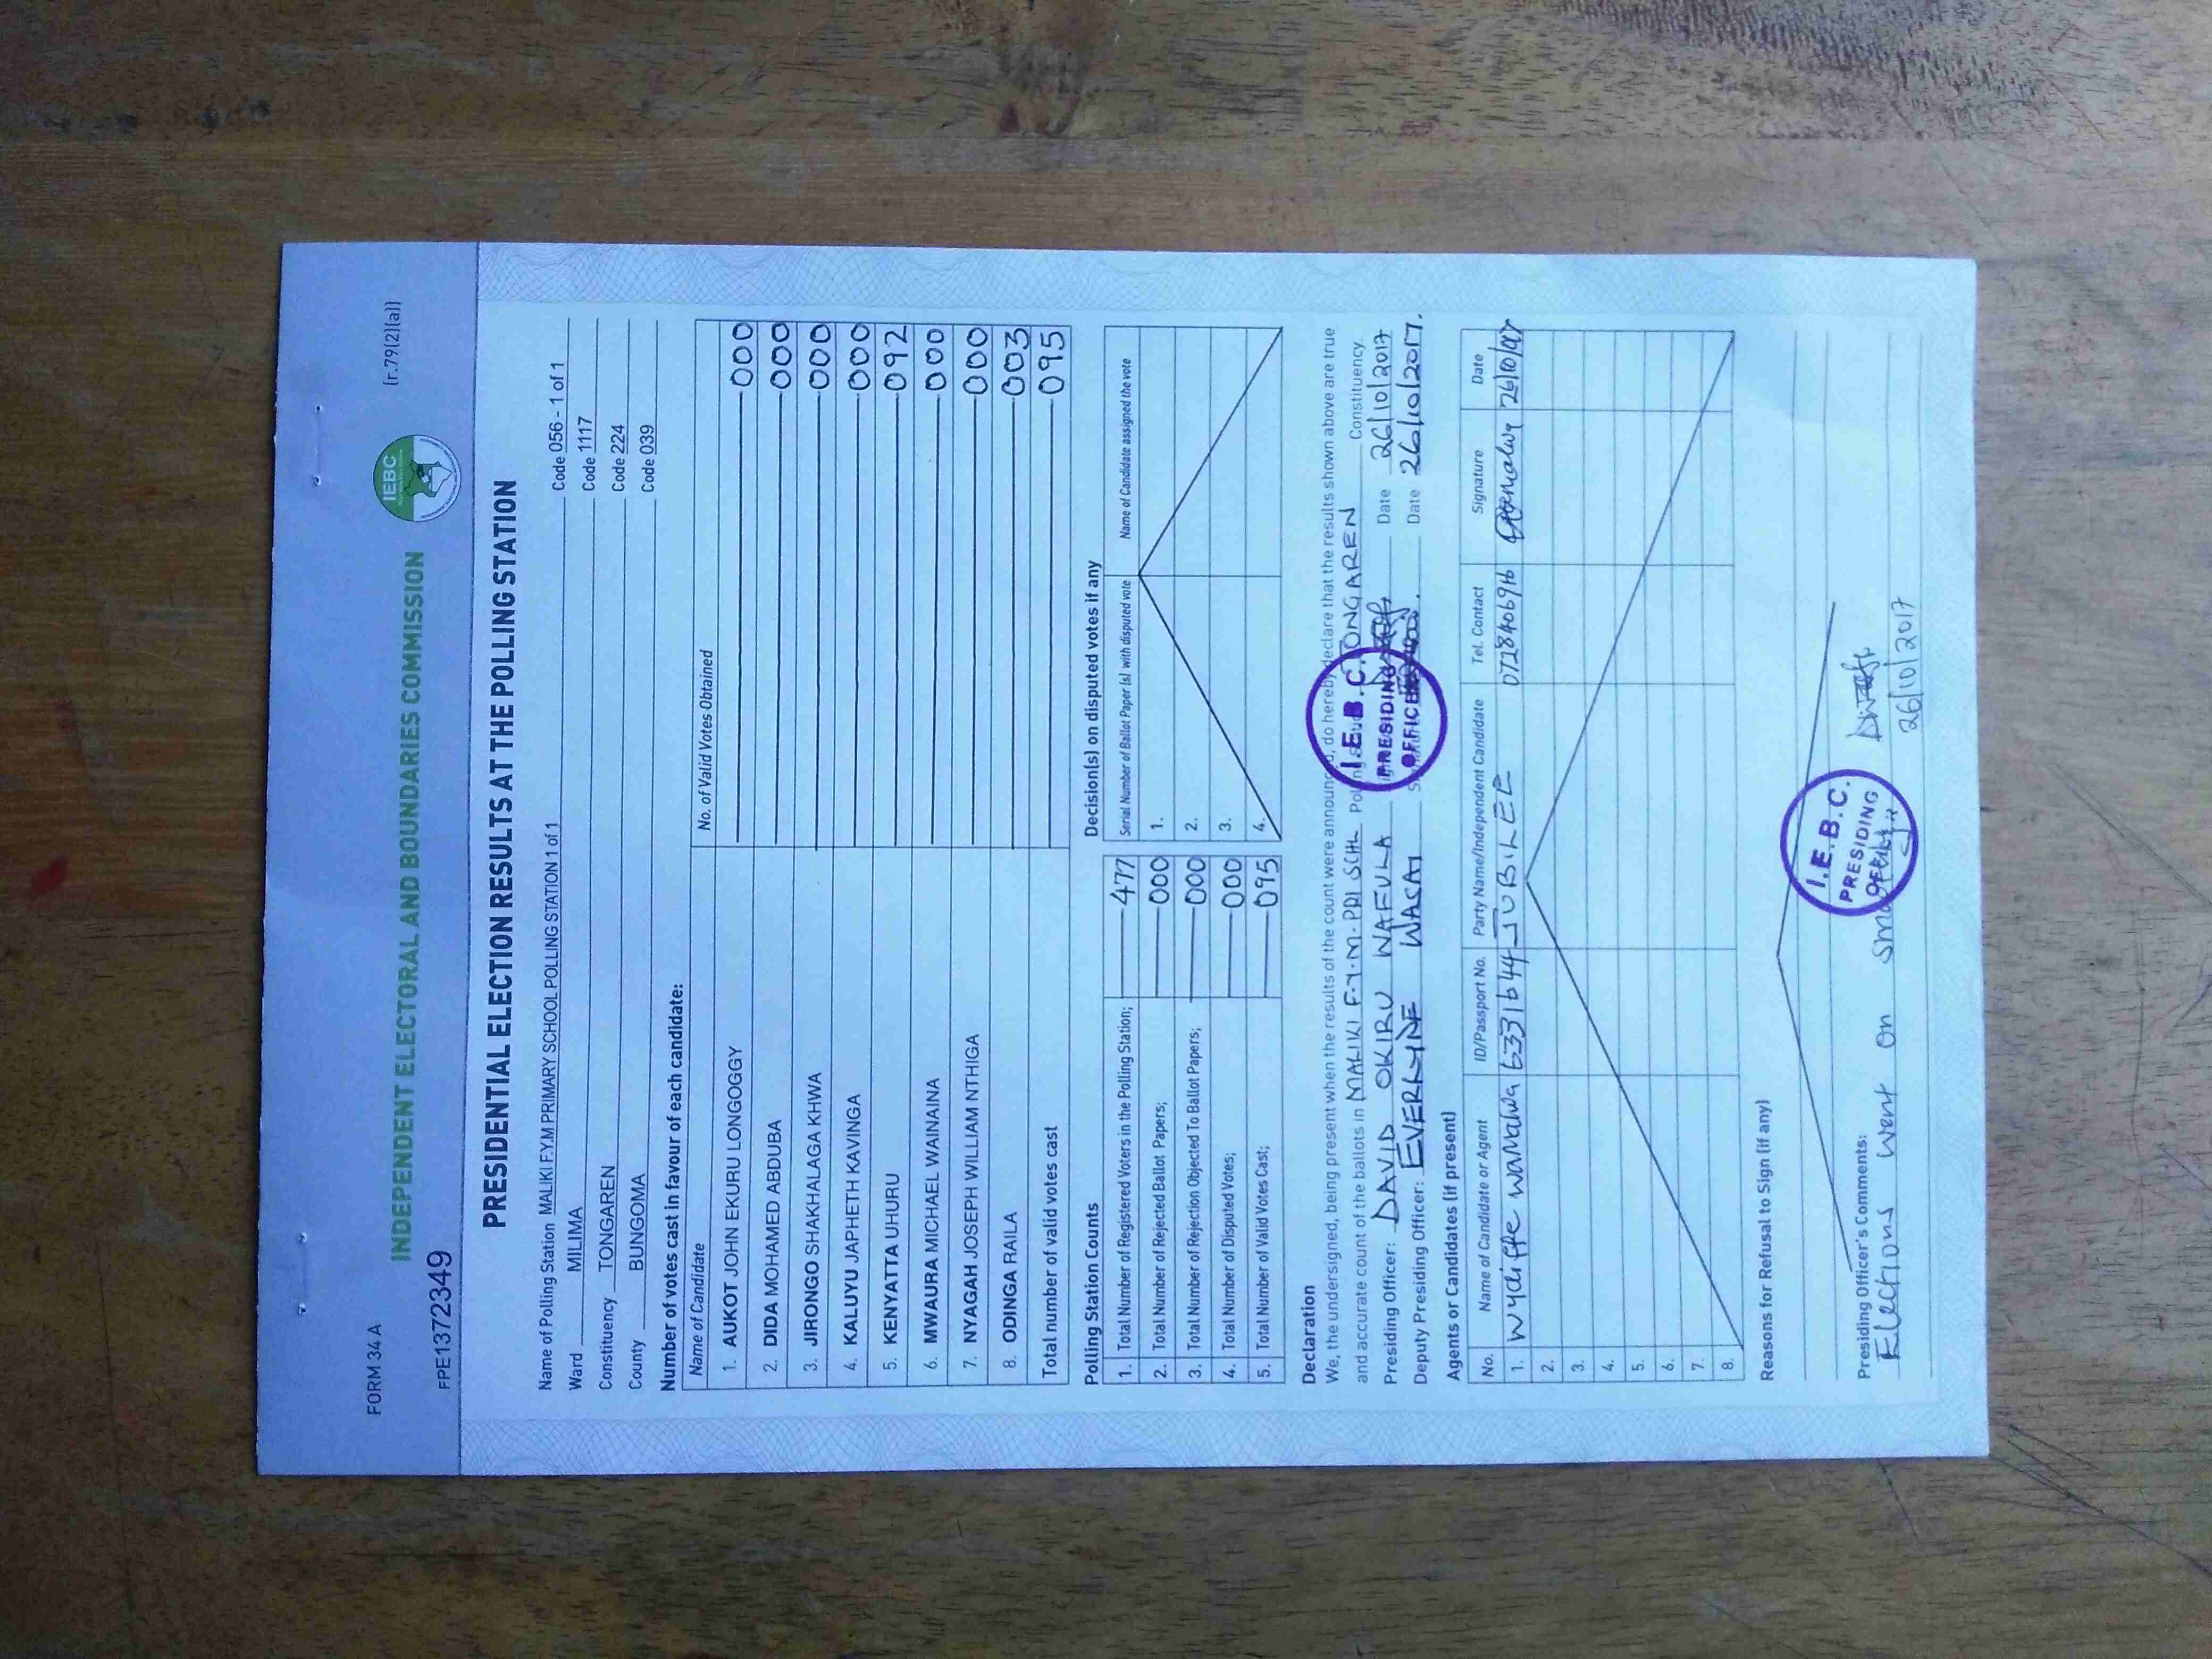 FORM 34 A
(r.79(2)(a))
IEBC
INDEPENDENT ELECTORAL AND BOUNDARIES COMMISSION
FPE1372349
PRESIDENTIAL ELECTION RESULTS AT THE POLLING STATION
Name of Polling Station MALIKI F.Y.M PRIMARY SCHOOL POLLING STATION 1 of 1 Code 056 - 1 of 1
Ward MILIMA Code 1117
Constituency TONGAREN Code 224
County BUNGOMA Code 039
Number of votes cast in favour of each candidate:
Name of Candidate No. of Valid Votes Obtained
1. AUKOT JOHN EKURU LONGOGGY 000
2. DIDA MOHAMED ABDUBA 000
3. JIRONGO SHAKHALAGA KHWA 000
4. KALUYU JAPHETH KAVINGA 000
5. KENYATTA UHURU 092
6. MWAURA MICHAEL WAINAINA 000
7. NYAGAH JOSEPH WILLIAM NTHIGA 000
8. ODINGA RAILA 003
Total number of valid votes cast 095
Polling Station Counts
1. Total Number of Registered Voters in the Polling Station; 477
2. Total Number of Rejected Ballot Papers; 000
3. Total Number of Rejection Objected To Ballot Papers; 000
4. Total Number of Disputed Votes; 000
5. Total Number of Valid Votes Cast; 095
Decision(s) on disputed votes if any
Serial Number of Ballot Paper (s) with disputed vote Name of Candidate assigned the vote
1.
2.
3.
4.
Declaration
We, the undersigned, being present when the results of the count were announced, do hereby declare that the results shown above are true
and accurate count of the ballots in MALIKI F.Y.M. PRI SCHL Polling TONGAREN Constituency.
Presiding Officer: DAVID OKIRU WAFULA Date 26/10/2017
Deputy Presiding Officer: EVERLYNE Date 26/10/2017.
I.E.B.C.
PRESIDING
OFFICER
Agents or Candidates (if present)
No. Name of Candidate or Agent ID/Passport No. Party Name/Independent Candidate Tel. Contact Signature Date
1. Wycliffe Wamalwa JUBILEE 26/10/017
2.
3.
4.
5.
6.
7.
8.
Reasons for Refusal to Sign (if any)
Presiding Officer's Comments:
Elections went on
26/10/2017
I.E.B.C.
PRESIDING
OFFICER